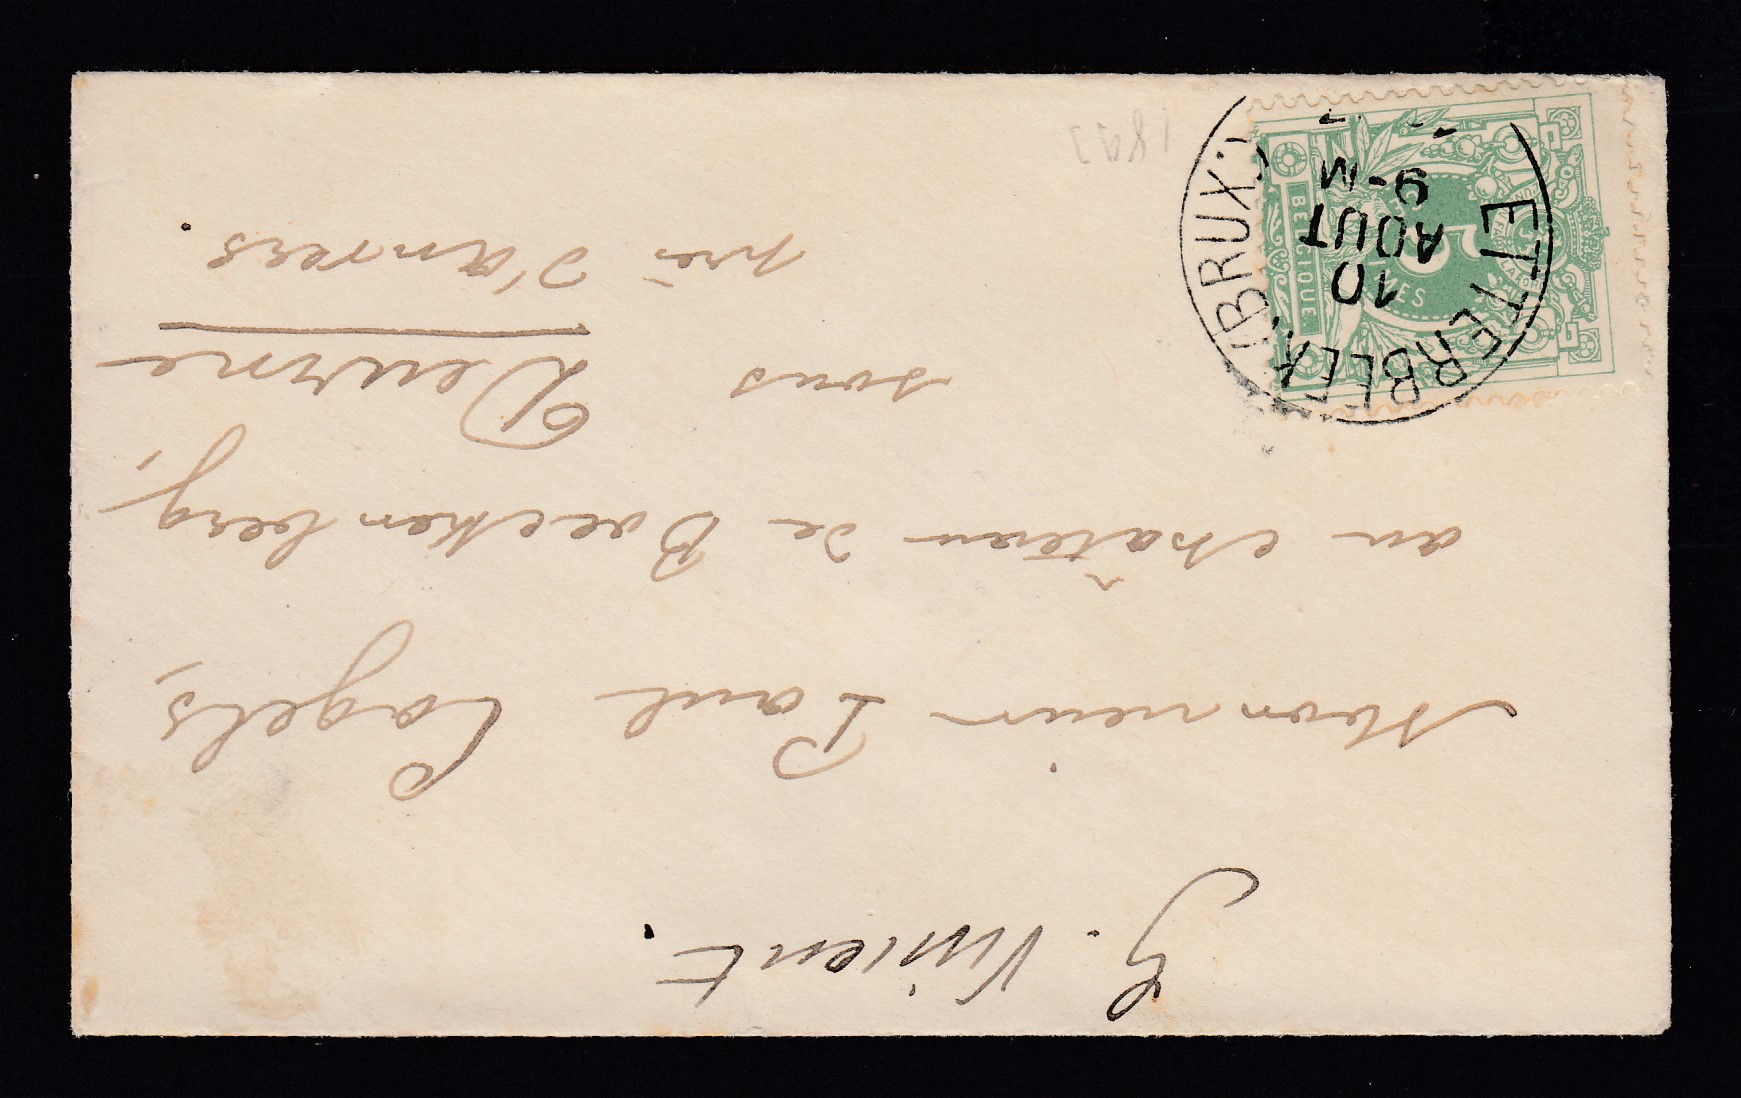 G. Vincent.
Monsieur Paul Cogels,
au château de Boeckenberg,
sous Deurne
près d'Anvers.
ETTERBEEK (BRUX:)
10
AOUT
9-M
BELGIQUE
5
189